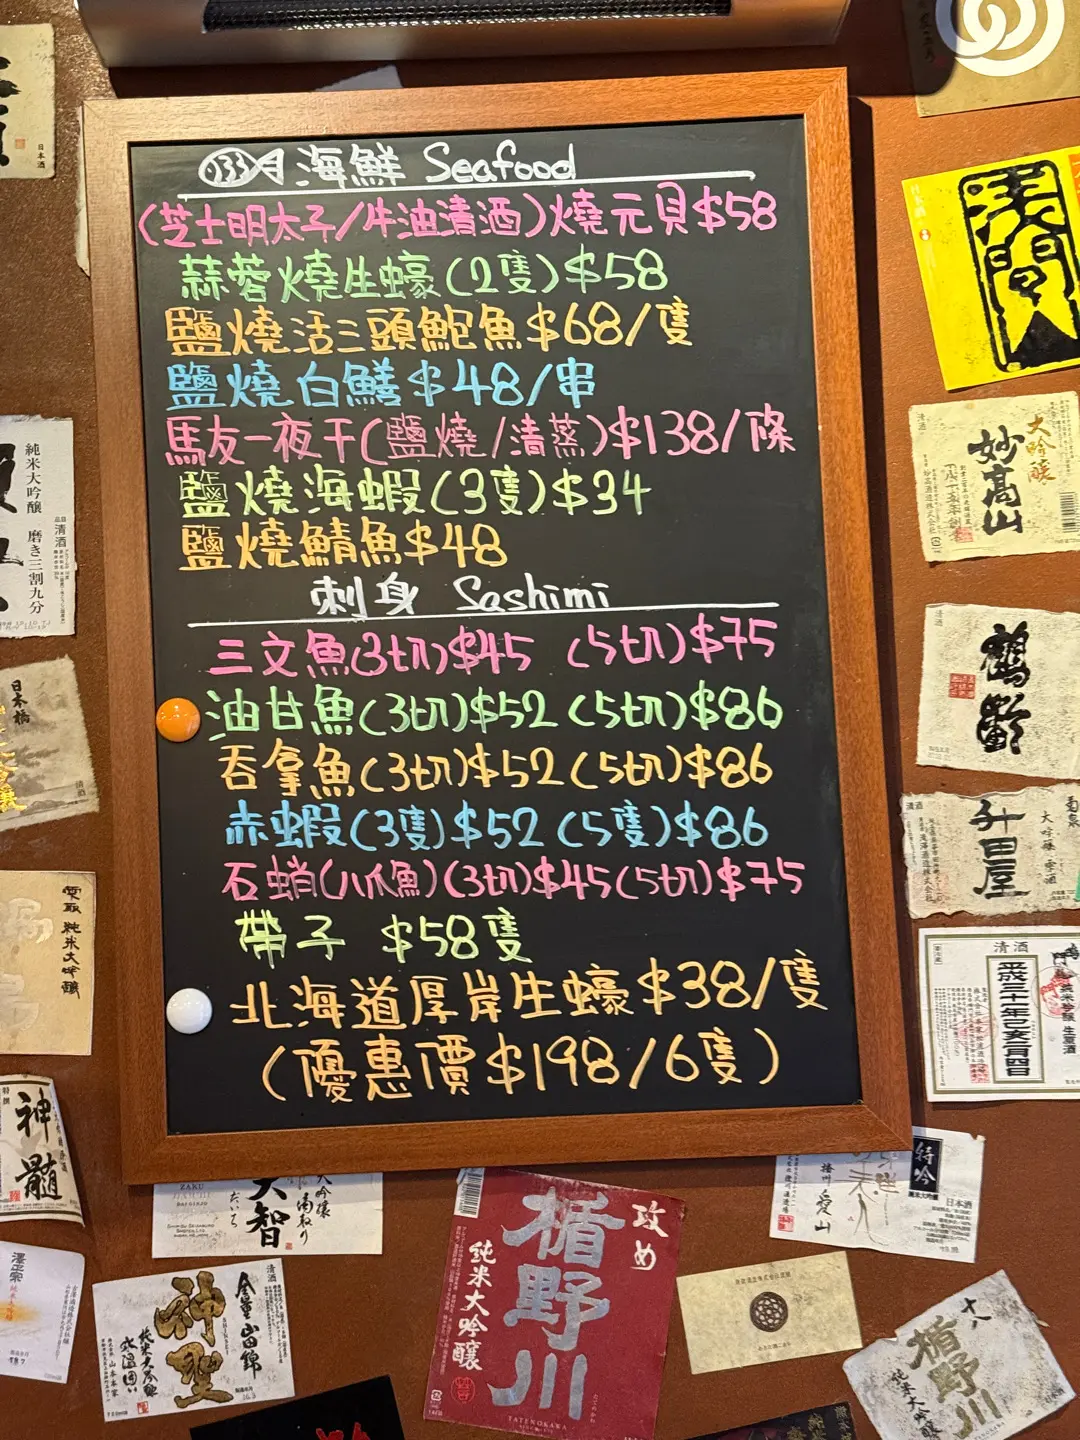 海鮮 Seafood
(芝士明太子/牛油清酒)燒元貝$58
蒜蓉燒生蠔(2隻)$58
鹽燒活三頭鮑魚$68/隻
鹽燒白鱔$48/串
馬友一夜干(鹽燒/清蒸)$138/條
鹽燒海蝦(3隻)$34
鹽燒鯖魚$48
刺身 Sashimi
三文魚(3切)$45 (5切)$75
油甘魚(3切)$52 (5切)$86
吞拿魚(3切)$52 (5切)$86
赤蝦(3隻)$52 (5隻)$86
石蛸(八爪魚)(3切)$45(5切)$75
帶子 $58隻
北海道厚岸生蠔$38/隻
(優惠價$198/6隻)
日本酒
純米大吟醸 磨き三割九分
清酒
日本橋
純米大吟醸
神髓
澤正宗
大吟醸
大智
ZAKU
だいち
清酒
金賞 山田錦
神聖
純米大吟醸
攻め
楯野川
純米大吟醸
TATENOKAWA
特吟
日本酒
播州 愛山
十八
楯野川
純米大吟醸
浅間山
大吟醸
妙高山
清酒
鶴齢
清酒
升田屋
大吟醸
清酒
平成三十一年己亥二月四日
純米吟醸 生原酒